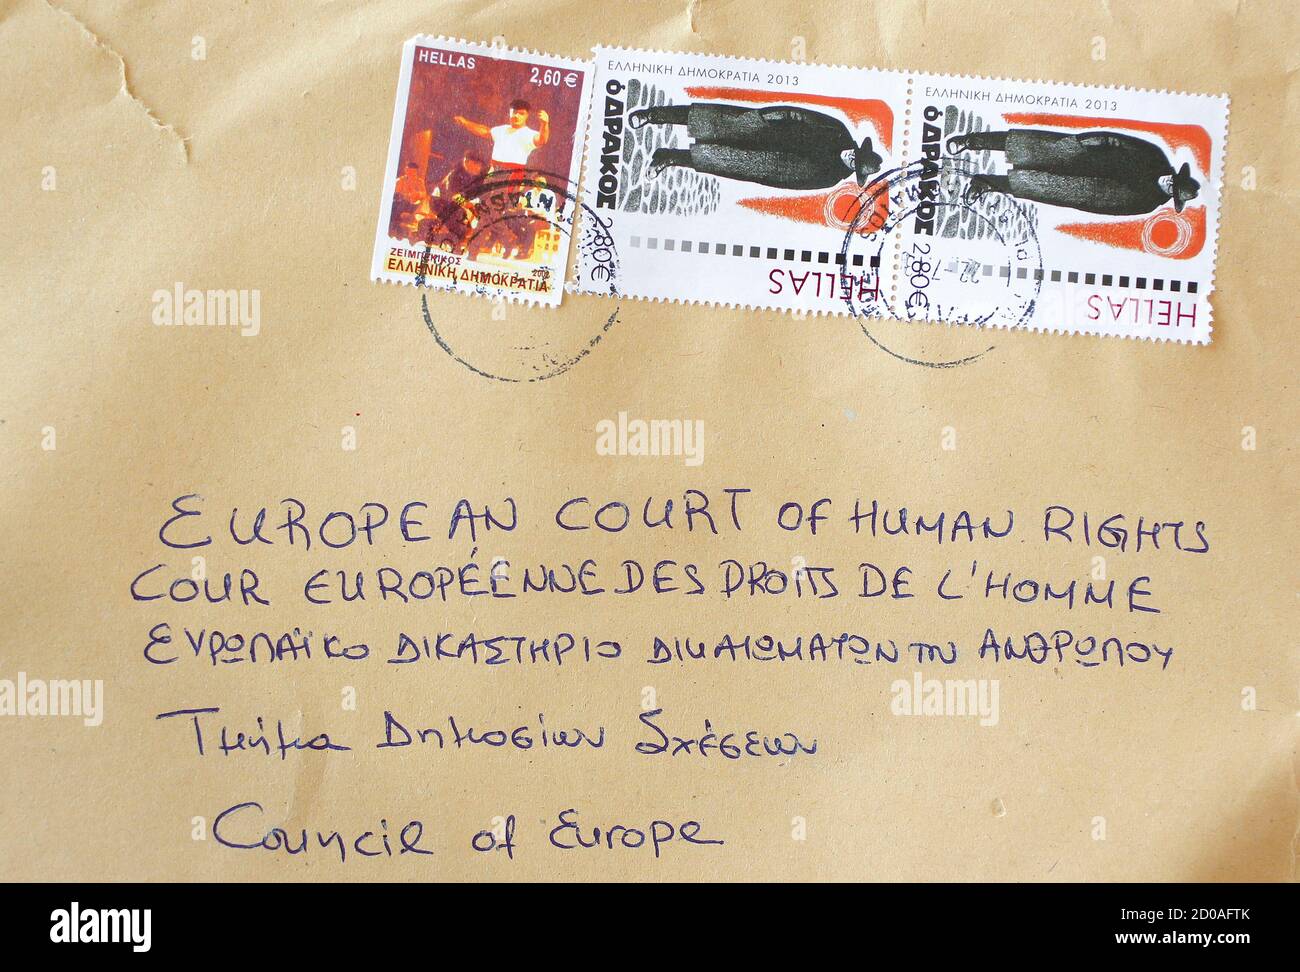 HELLAS
2,60€
ΖΕΪΜΠΕΚΙΚΟΣ
ΕΛΛΗΝΙΚΗ ΔΗΜΟΚΡΑΤΙΑ
ΕΛΛΗΝΙΚΗ ΔΗΜΟΚΡΑΤΙΑ 2013
ὁ ΔΡΑΚΟΣ
2,80€
HELLAS
ΕΛΛΗΝΙΚΗ ΔΗΜΟΚΡΑΤΙΑ 2013
ὁ ΔΡΑΚΟΣ
2,80€
HELLAS
EUROPEAN COURT OF HUMAN RIGHTS
COUR EUROPÉENNE DES DROITS DE L'HOMME
ΕΥΡΩΠΑΪΚΟ ΔΙΚΑΣΤΗΡΙΟ ΔΙΚΑΙΩΜΑΤΩΝ ΤΟΥ ΑΝΘΡΩΠΟΥ
Τμήμα Δημοσίων Σχέσεων
Council of Europe
alamy
Image ID: 2D0AFTK
www.alamy.com